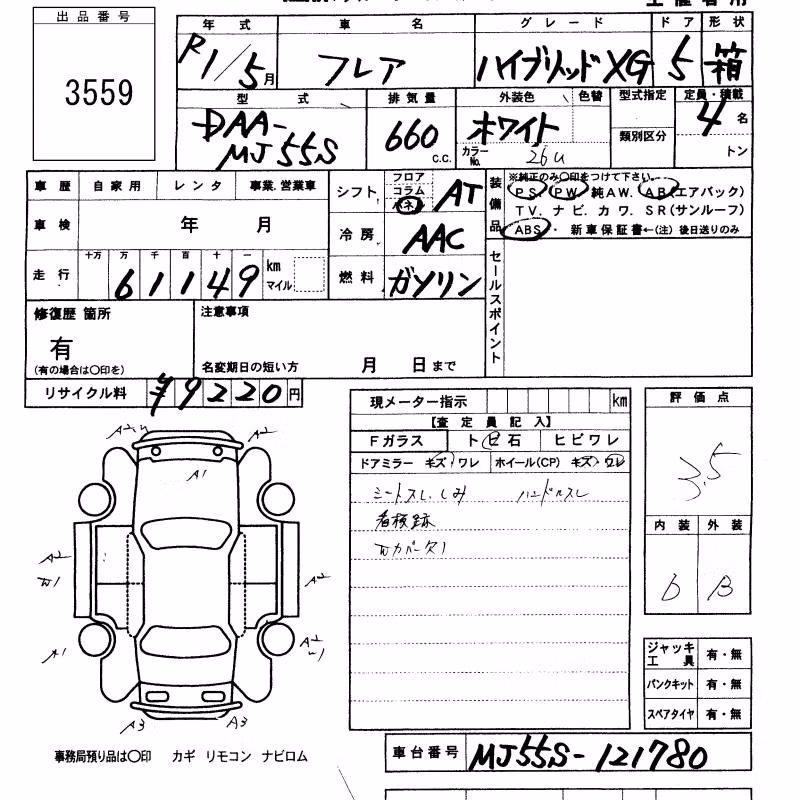 出品番号
3559
年式 車名 グレード ドア 形状
R1/5月 フレア ハイブリッドXG 5 箱
型式 排気量 外装色 色替 型式指定 定員・積載
DAA-MJ55S 660 C.C. ホワイト 4名
カラーNo. 26U 類別区分 トン
車歴 自家用 レンタ 事業.営業車
シフト フロア コラム AT
装備品 ※純正のみ〇印をつけて下さい。
PS. PW. 純AW. AB(エアバック)
TV. ナビ. カワ. SR(サンルーフ)
ABS・新車保証書←(注)後日送りのみ
車検 年 月
冷房 AAC
走行 十万 万 千 百 十 一
61149 km マイル
燃料 ガソリン
セールスポイント
修復歴 箇所
有
(有の場合は〇印を)
注意事項
名変期日の短い方 月 日まで
リサイクル料 ¥9220円
現メーター指示 km
【査定員記入】
Fガラス トビ石 ヒビワレ
ドアミラー キズ・ワレ ホイール(CP) キズ・ワレ
シートスレ.しみ ハンドルスレ
看板跡
評価点
3.5
内装 外装
D B
A2 A2
A1
A2 A2
A1 A2
A3 A3
ジャッキ工具 有・無
パンクキット 有・無
スペアタイヤ 有・無
事務局預り品は〇印 カギ リモコン ナビロム
車台番号 MJ55S-121780